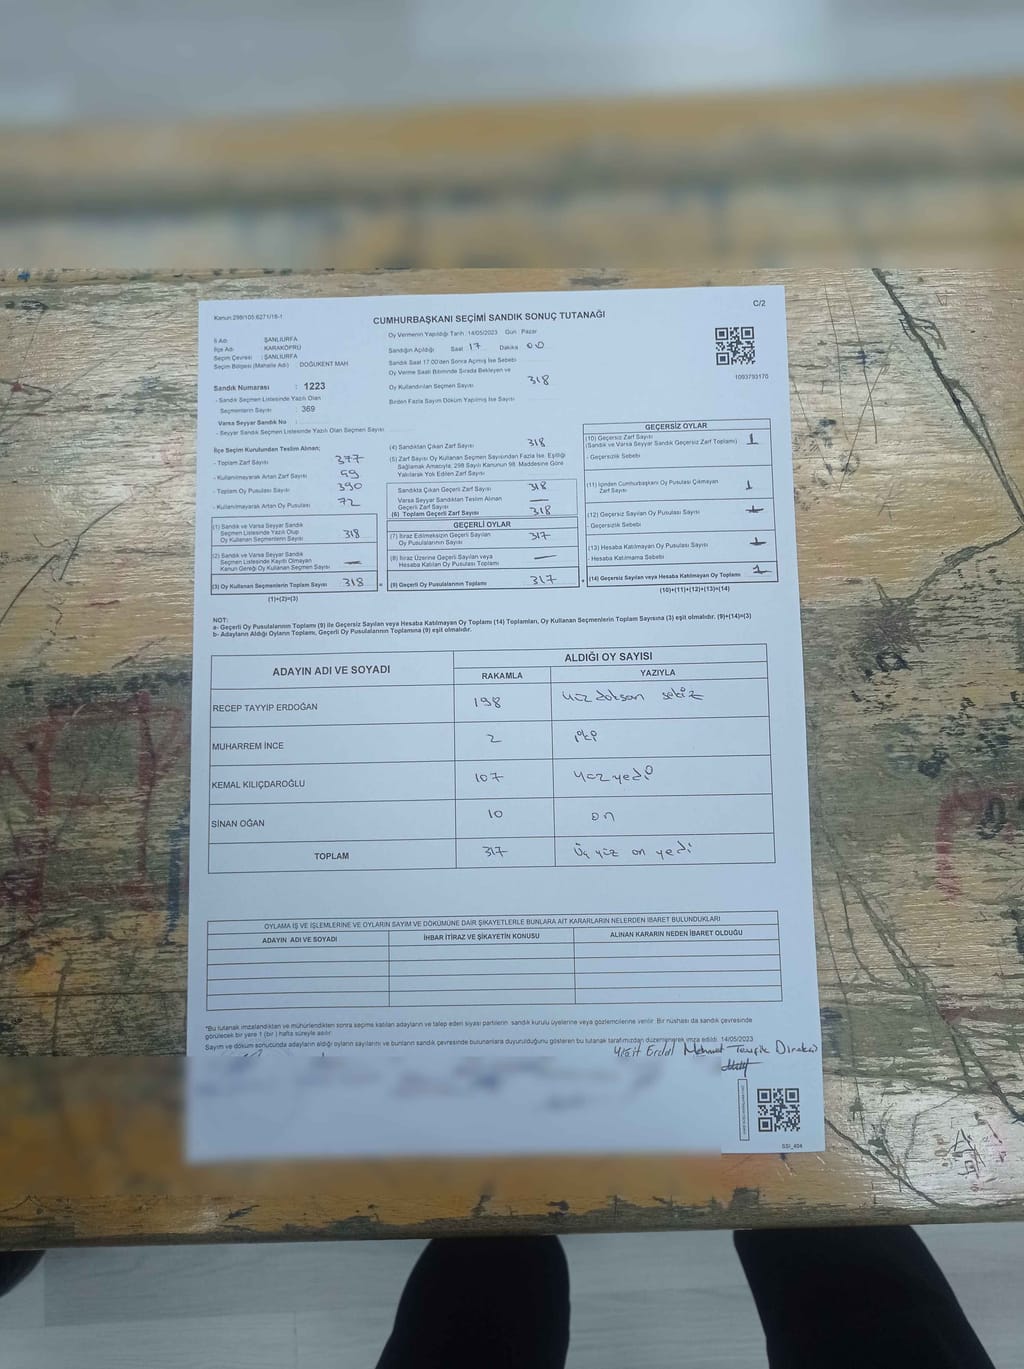 Kanun:298/105 6271/18-1
C/2
CUMHURBAŞKANI SEÇİMİ SANDIK SONUÇ TUTANAĞI
İl Adı : ŞANLIURFA
İlçe Adı : KARAKÖPRÜ
Seçim Çevresi : ŞANLIURFA
Seçim Bölgesi (Mahalle Adı) : DOĞUKENT MAH
Sandık Numarası : 1223
- Sandık Seçmen Listesinde Yazılı Olan
Seçmenlerin Sayısı : 369
Varsa Seyyar Sandık No :
- Seyyar Sandık Seçmen Listesinde Yazılı Olan Seçmen Sayısı
Oy Vermenin Yapıldığı Tarih :14/05/2023 Gün : Pazar
Sandığın Açıldığı Saat 17 Dakika 00
Sandık Saat 17:00'den Sonra Açılmış İse Sebebi
Oy Verme Saati Bitiminde Sırada Bekleyen ve
Oy Kullandırılan Seçmen Sayısı 318
Birden Fazla Sayım Döküm Yapılmış İse Sayısı
1093793170
İlçe Seçim Kurulundan Teslim Alınan;
- Toplam Zarf Sayısı 377
- Kullanılmayarak Artan Zarf Sayısı 59
- Toplam Oy Pusulası Sayısı 390
- Kullanılmayarak Artan Oy Pusulası 72
(1) Sandık ve Varsa Seyyar Sandık
Seçmen Listesinde Yazılı Olup
Oy Kullanan Seçmenlerin Sayısı 318
(2) Sandık ve Varsa Seyyar Sandık
Seçmen Listesinde Kayıtlı Olmayan
Kanun Gereği Oy Kullanan Seçmen Sayısı —
(3) Oy Kullanan Seçmenlerin Toplam Sayısı 318
(1)+(2)=(3)
(4) Sandıktan Çıkan Zarf Sayısı 318
(5) Zarf Sayısı Oy Kullanan Seçmen Sayısından Fazla İse, Eşitliği
Sağlamak Amacıyla, 298 Sayılı Kanunun 98. Maddesine Göre
Yakılarak Yok Edilen Zarf Sayısı
Sandıkta Çıkan Geçerli Zarf Sayısı 318
Varsa Seyyar Sandıktan Teslim Alınan
Geçerli Zarf Sayısı —
(6) Toplam Geçerli Zarf Sayısı 318
GEÇERLİ OYLAR
(7) İtiraz Edilmeksizin Geçerli Sayılan
Oy Pusulalarının Sayısı 317
(8) İtiraz Üzerine Geçerli Sayılan veya
Hesaba Katılan Oy Pusulası Toplamı —
= (9) Geçerli Oy Pusulalarının Toplamı 317
GEÇERSİZ OYLAR
(10) Geçersiz Zarf Sayısı
(Sandık ve Varsa Seyyar Sandık Geçersiz Zarf Toplamı) 1
- Geçersizlik Sebebi
(11) İçinden Cumhurbaşkanı Oy Pusulası Çıkmayan
Zarf Sayısı
(12) Geçersiz Sayılan Oy Pusulası Sayısı
- Geçersizlik Sebebi
(13) Hesaba Katılmayan Oy Pusulası Sayısı
- Hesaba Katılmama Sebebi
+ (14) Geçersiz Sayılan veya Hesaba Katılmayan Oy Toplamı 1
(10)+(11)+(12)+(13)=(14)
NOT:
a- Geçerli Oy Pusulalarının Toplamı (9) ile Geçersiz Sayılan veya Hesaba Katılmayan Oy Toplamı (14) Toplamları, Oy Kullanan Seçmenlerin Toplam Sayısına (3) eşit olmalıdır. (9)+(14)=(3)
b- Adayların Aldığı Oyların Toplamı, Geçerli Oy Pusulalarının Toplamına (9) eşit olmalıdır.
ADAYIN ADI VE SOYADI ALDIĞI OY SAYISI
RAKAMLA YAZIYLA
RECEP TAYYİP ERDOĞAN 198 yüz doksan sekiz
MUHARREM İNCE 2 iki
KEMAL KILIÇDAROĞLU 107 yüz yedi
SİNAN OĞAN 10 on
TOPLAM 317 Üç yüz on yedi
OYLAMA İŞ VE İŞLEMLERİNE VE OYLARIN SAYIM VE DÖKÜMÜNE DAİR ŞİKAYETLERLE BUNLARA AİT KARARLARIN NELERDEN İBARET BULUNDUKLARI
ADAYIN ADI VE SOYADI İHBAR İTİRAZ VE ŞİKAYETİN KONUSU ALINAN KARARIN NEDEN İBARET OLDUĞU
*Bu tutanak imzalandıktan ve mühürlendikten sonra seçime katılan adayların ve talep eden siyasi partilerin sandık kurulu üyelerine veya gözlemcilerine verilir. Bir nüshası da sandık çevresinde
görülecek bir yere 1 (bir ) hafta süreyle asılır.
Sayım ve döküm sonucunda adayların aldığı oyların sayılarını ve bunların sandık çevresinde bulunanlara duyurulduğunu gösteren bu tutanak tarafımızdan düzenlenerek imza edildi. 14/05/2023
Yiğit Erdal Mehmet Tevfik
SSİ_404